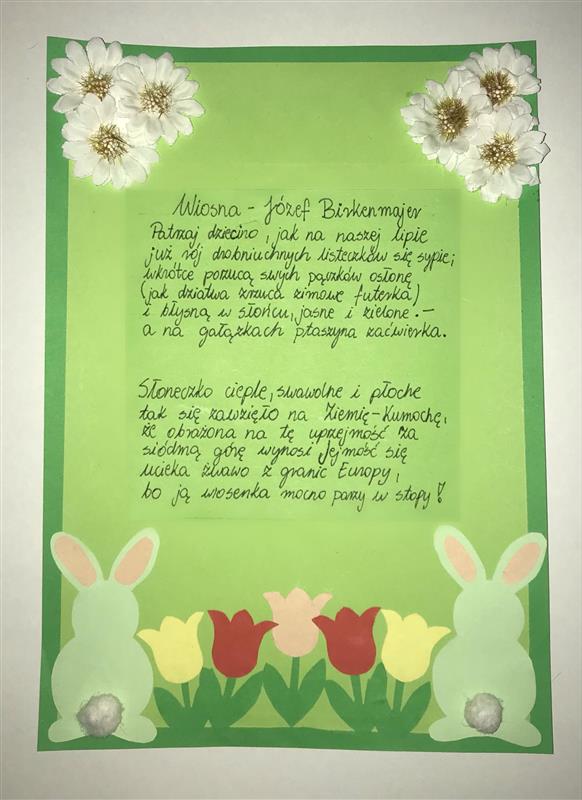 Wiosna - Józef Birkenmajer
Patrzaj dziecino, jak na naszej lipie
już rój drobniuchnych listeczków się sypie;
wkrótce porzucą swych pączków osłonę
(jak dziatwa zrzuca zimowe futerka)
i błysną w słońcu, jasne i zielone. –
a na gałązkach ptaszyna zaćwierka.
Słoneczko ciepłe, swawolne i płoche
tak się zawzięło na Ziemię-Kumochę,
że obrażona na tę uprzejmość za
siódmą górę wynosi Jejmość się
ucieka żwawo z granic Europy,
bo ją wiosenka mocno parzy w stopy!